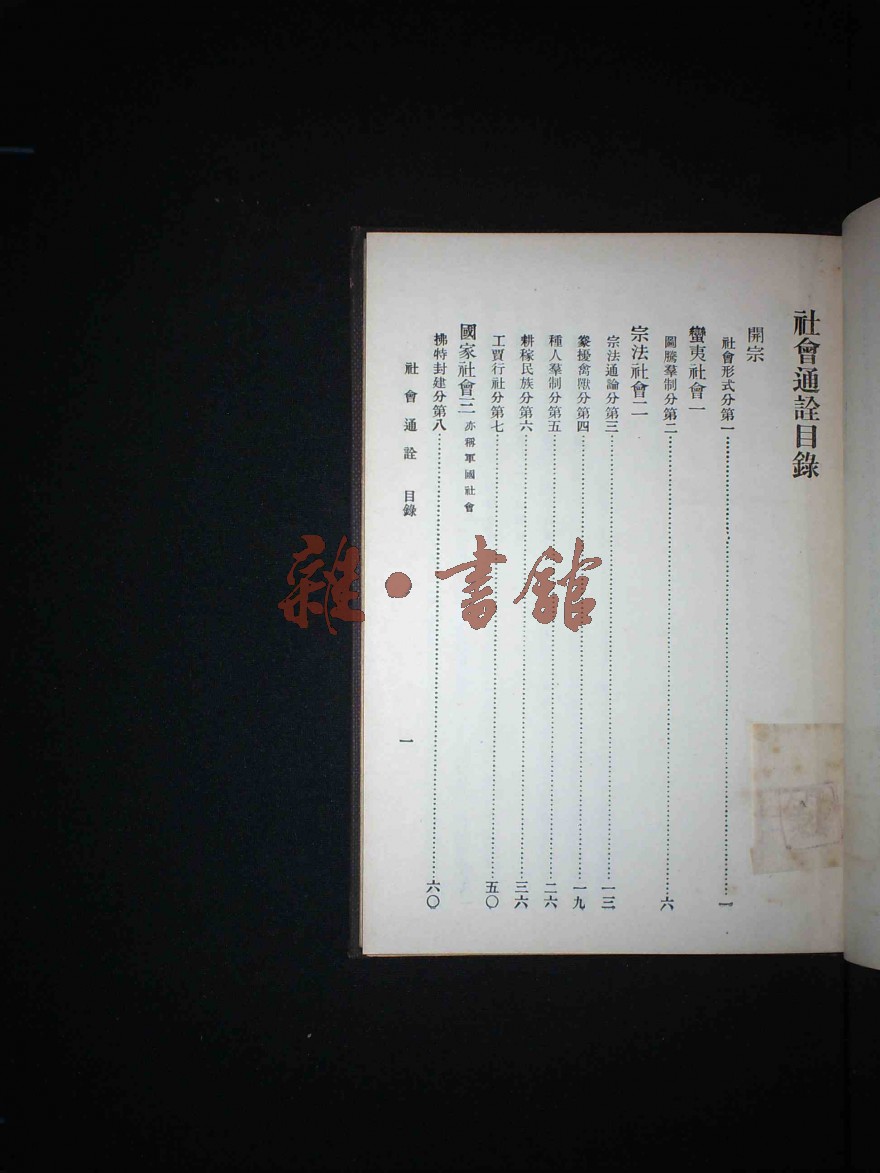 社會通詮目錄
開宗
社會形式分第一……一
蠻夷社會一
圖騰羣制分第二……六
宗法社會二
宗法通論分第三……一三
豢擾禽獸分第四……一九
種人羣制分第五……二六
耕稼民族分第六……三六
工賈行社分第七……五〇
國家社會三 亦稱軍國社會
拂特封建分第八……六〇
社會通詮 目錄
一
雜·書館